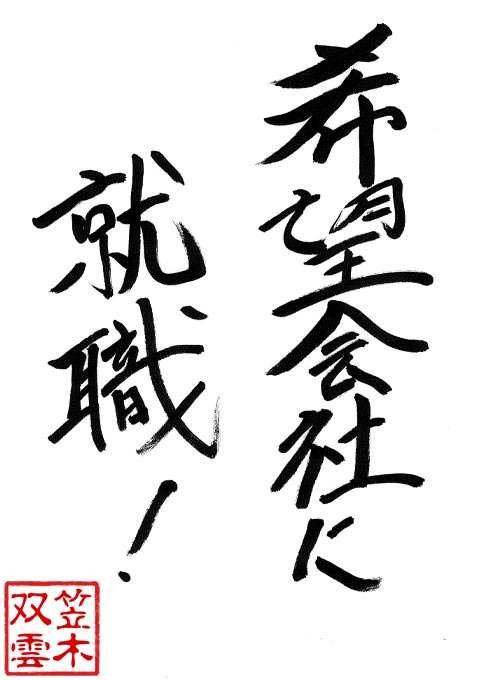 希望会社に
就職!
笠木
双雲